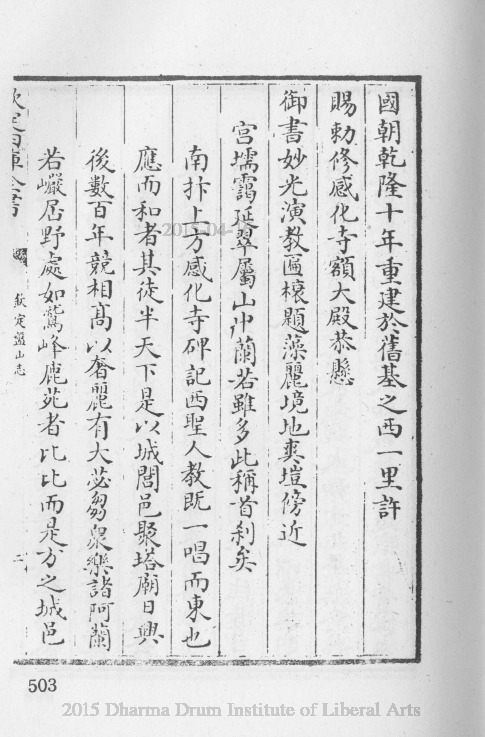 國朝乾隆十年重建於舊基之西一里許
賜勅修感化寺額大殿恭懸
御書妙光演教匾榱題藻麗境地爽塏傍近
宫壖靄延翠屬山中蘭若雖多此稱首刹矣
南抃上方感化寺碑記西聖人教既一唱而東也
應而和者其徒半天下是以城閭邑聚塔廟日興
後數百年競相髙以奢麗有大苾芻衆樂諸阿蘭
若巖居野處如鷲峰鹿苑者比比而是方之城邑
欽定四庫全書
欽定盤山志
503
2015 Dharma Drum Institute of Liberal Arts